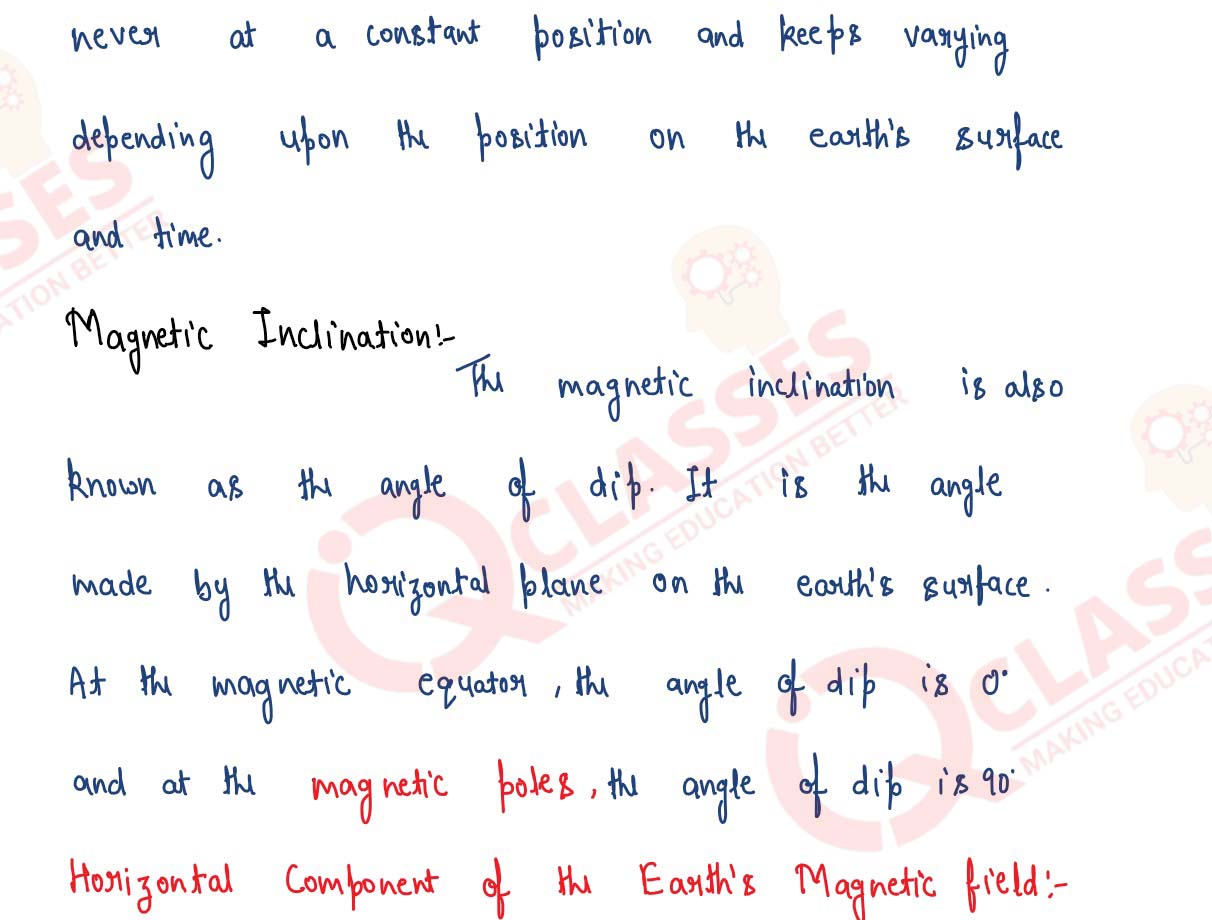 never at a constant position and keeps varying
depending upon the position on the earth's surface
and time.
Magnetic Inclination:-
The magnetic inclination is also
known as the angle of dip. It is the angle
made by the horizontal plane on the earth's surface.
At the magnetic equator, the angle of dip is 0°
and at the magnetic poles, the angle of dip is 90°
Horizontal Component of the Earth's Magnetic field:-
SES
ATION BETTER
CLASSES
MAKING EDUCATION BETTER
CLASS
MAKING EDUCA